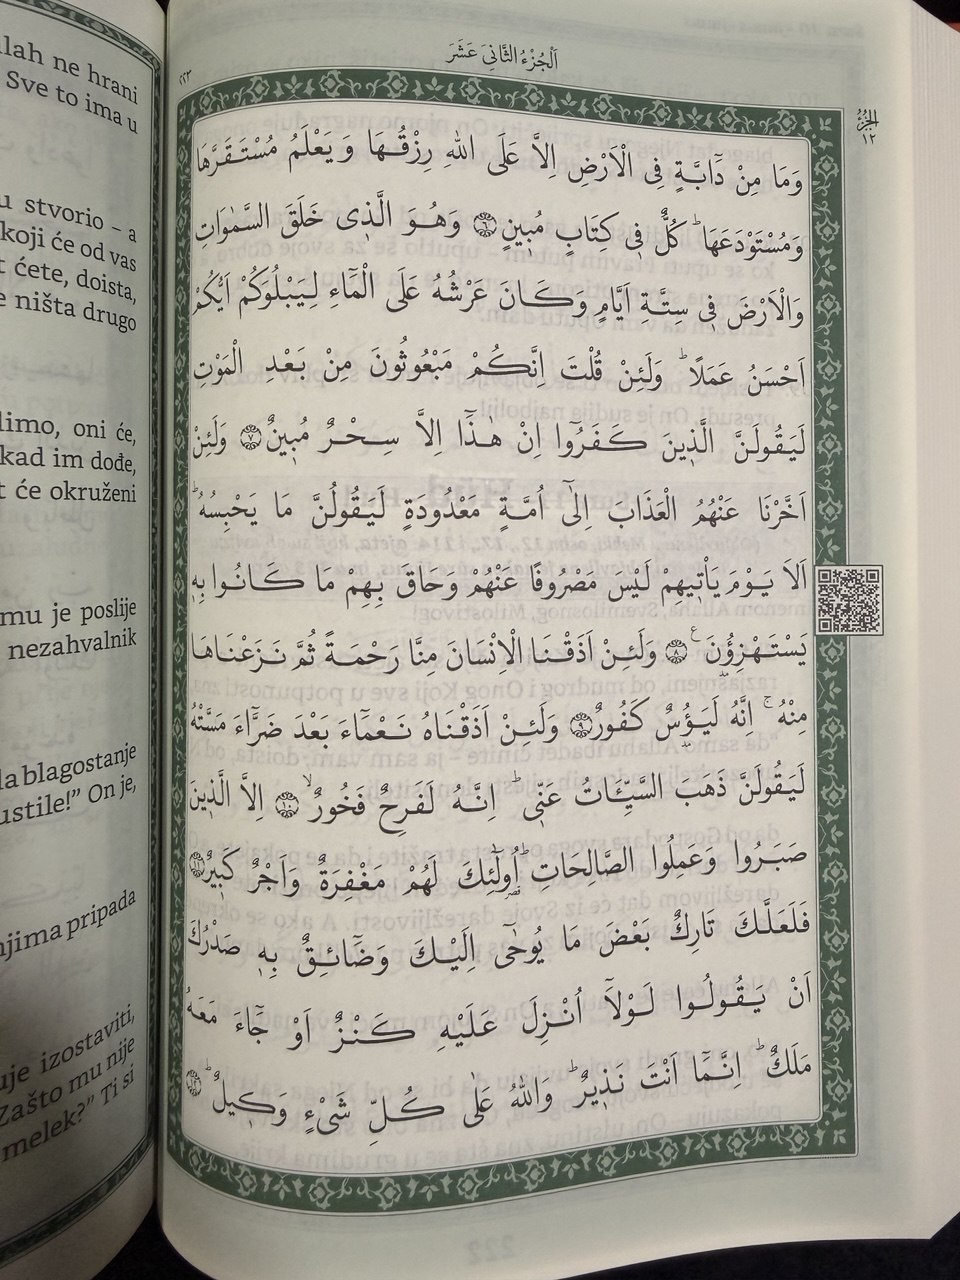 llah ne hrani
Sve to ima u
u stvorio – a
koji će od vas
t ćete, doista,
e ništa drugo
limo, oni će,
kad im dođe,
t će okruženi
mu je poslije
nezahvalnik
la blagostanje
ustile!” On je,
njima pripada
uje izostaviti,
Zašto mu nije
melek?” Ti si
اَلْجُزْءُ الثَّانِىَ عَشَرَ
٢٢٢
الجزء
١٢
وَمَا مِنْ دَٓابَّةٍ فِى الْاَرْضِ اِلَّا عَلَى اللّٰهِ رِزْقُهَا وَيَعْلَمُ مُسْتَقَرَّهَا
وَمُسْتَوْدَعَهَاۜ كُلٌّ ف۪ى كِتَابٍ مُب۪ينٍ ﴿٦﴾ وَهُوَ الَّذ۪ى خَلَقَ السَّمٰوَاتِ
وَالْاَرْضَ ف۪ى سِتَّةِ اَيَّامٍ وَكَانَ عَرْشُهُ عَلَى الْمَٓاءِ لِيَبْلُوَكُمْ اَيُّكُمْ
اَحْسَنُ عَمَلًاۜ وَلَئِنْ قُلْتَ اِنَّكُمْ مَبْعُوثُونَ مِنْ بَعْدِ الْمَوْتِ
لَيَقُولَنَّ الَّذ۪ينَ كَفَرُٓوا اِنْ هٰذَٓا اِلَّا سِحْرٌ مُب۪ينٌ ﴿٧﴾ وَلَئِنْ
اَخَّرْنَا عَنْهُمُ الْعَذَابَ اِلٰٓى اُمَّةٍ مَعْدُودَةٍ لَيَقُولُنَّ مَا يَحْبِسُهُۜ
اَلَا يَوْمَ يَأْت۪يهِمْ لَيْسَ مَصْرُوفًا عَنْهُمْ وَحَاقَ بِهِمْ مَا كَانُوا بِه۪
يَسْتَهْزِؤُ۫نَ ﴿٨﴾ وَلَئِنْ اَذَقْنَا الْاِنْسَانَ مِنَّا رَحْمَةً ثُمَّ نَزَعْنَاهَا
مِنْهُۚ اِنَّهُ لَيَؤُ۫سٌ كَفُورٌ ﴿٩﴾ وَلَئِنْ اَذَقْنَاهُ نَعْمَٓاءَ بَعْدَ ضَرَّٓاءَ مَسَّتْهُ
لَيَقُولَنَّ ذَهَبَ السَّيِّـَٔاتُ عَنّ۪ىۜ اِنَّهُ لَفَرِحٌ فَخُورٌۙ ﴿١٠﴾ اِلَّا الَّذ۪ينَ
صَبَرُوا وَعَمِلُوا الصَّالِحَاتِۜ اُو۬لٰٓئِكَ لَهُمْ مَغْفِرَةٌ وَاَجْرٌ كَب۪يرٌ ﴿١١﴾
فَلَعَلَّكَ تَارِكٌ بَعْضَ مَا يُوحٰٓى اِلَيْكَ وَضَٓائِقٌ بِه۪ صَدْرُكَ
اَنْ يَقُولُوا لَوْلَٓا اُنْزِلَ عَلَيْهِ كَنْزٌ اَوْ جَٓاءَ مَعَهُ
مَلَكٌۜ اِنَّمَٓا اَنْتَ نَذ۪يرٌۜ وَاللّٰهُ عَلٰى كُلِّ شَىْءٍ وَك۪يلٌۜ ﴿١٢﴾